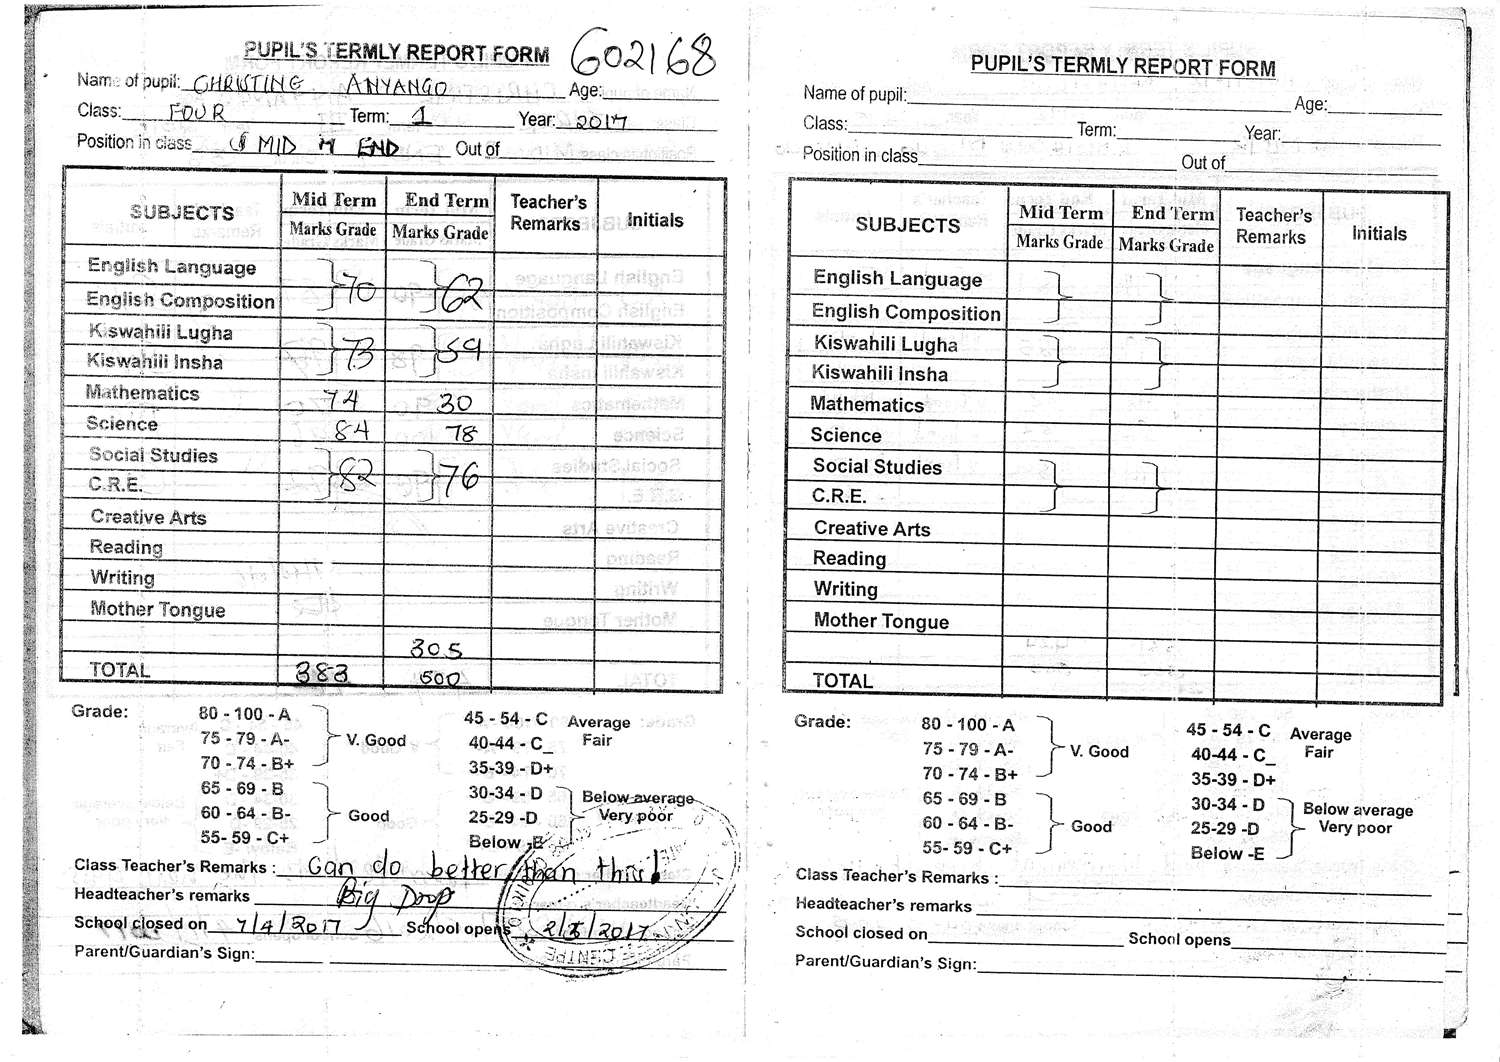 PUPIL'S TERMLY REPORT FORM 602168
Name of pupil: CHRISTINE ANYANGO Age:
Class: FOUR Term: 1 Year: 2017
Position in class MID END Out of
SUBJECTS Mid Term End Term Teacher's Remarks Initials
Marks Grade Marks Grade
English Language
English Composition 70 62
Kiswahili Lugha
Kiswahili Insha 73 59
Mathematics 74 30
Science 84 78
Social Studies
C.R.E. 82 76
Creative Arts
Reading
Writing
Mother Tongue
305
TOTAL 383 500
Grade: 80 - 100 - A 45 - 54 - C Average
75 - 79 - A- V. Good 40-44 - C_ Fair
70 - 74 - B+ 35-39 - D+
65 - 69 - B 30-34 - D Below average
60 - 64 - B- Good 25-29 -D Very poor
55- 59 - C+ Below -E
Class Teacher's Remarks : Can do better than this!
Headteacher's remarks Big Drop
School closed on 7/4/2017 School opens 2/5/2017
Parent/Guardian's Sign:
PUPIL'S TERMLY REPORT FORM
Name of pupil: Age:
Class: Term: Year:
Position in class Out of
SUBJECTS Mid Term End Term Teacher's Remarks Initials
Marks Grade Marks Grade
English Language
English Composition
Kiswahili Lugha
Kiswahili Insha
Mathematics
Science
Social Studies
C.R.E.
Creative Arts
Reading
Writing
Mother Tongue
TOTAL
Grade: 80 - 100 - A 45 - 54 - C Average
75 - 79 - A- V. Good 40-44 - C_ Fair
70 - 74 - B+ 35-39 - D+
65 - 69 - B 30-34 - D Below average
60 - 64 - B- Good 25-29 -D Very poor
55- 59 - C+ Below -E
Class Teacher's Remarks :
Headteacher's remarks
School closed on School opens
Parent/Guardian's Sign: